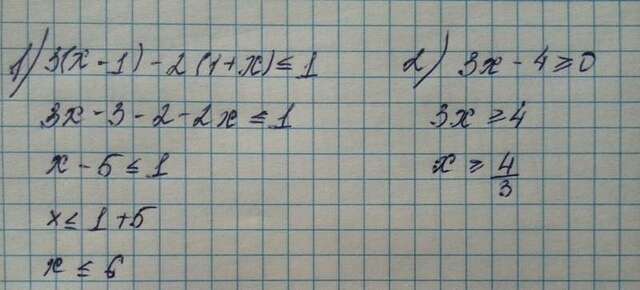 1) 3(x - 1) - 2(1+x) ≤ 1
3x - 3 - 2 - 2x ≤ 1
x - 5 ≤ 1
x ≤ 1 + 5
x ≤ 6
2) 3x - 4 ≥ 0
3x ≥ 4
x ≥ 4/3